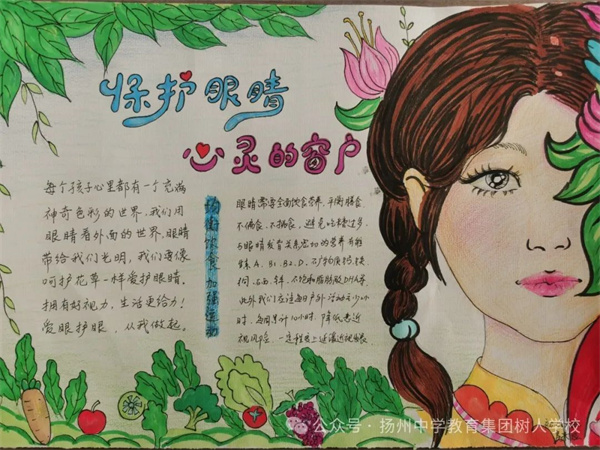 保护眼睛
心灵的窗户
每个孩子心里都有一个充满
神奇色彩的世界,我们用
眼睛看外面的世界.眼睛
带给我们光明,我们要像
呵护花草一样爱护眼睛。
拥有好视力,生活更给力!
爱眼护眼,从我做起。
均衡饮食 加强运动
眼睛需要全面饮食营养,平衡膳食
不偏食,不挑食,避免吃糖过多,
与眼睛发育关系密切的营养有维
A、B1、B2、D、不
不饱和脂肪酸DHA等
此外我们应该每日户外活动至少2小
时,每周累计14小时,降低患近
视风
公众号·扬州中学教育集团树人学校